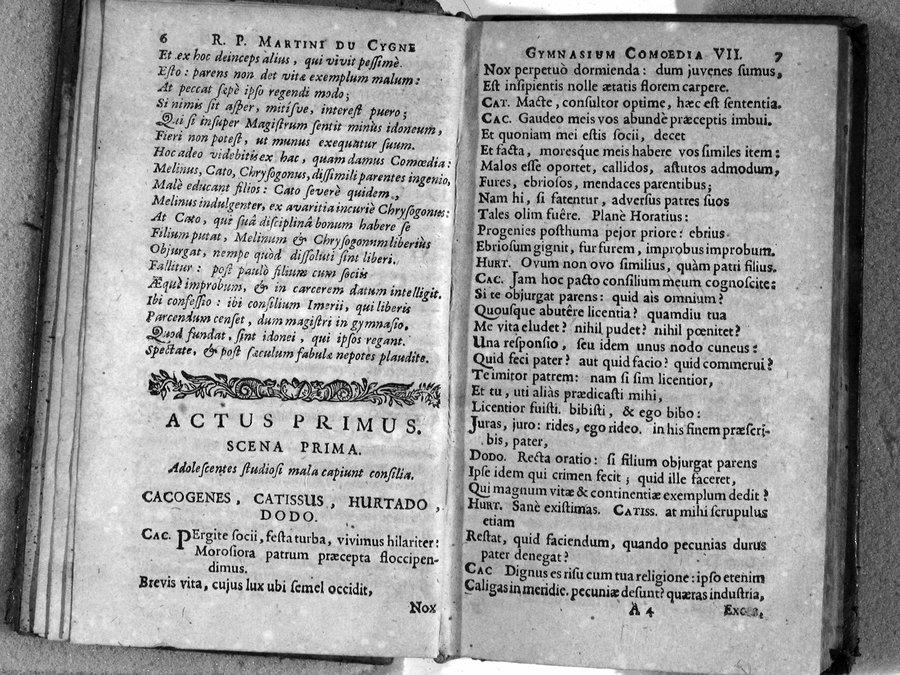 6 R. P. MARTINI DU CYGNE
Et ex hoc deinceps alius, qui vivit pessimè.
Esto: parens non det vitæ exemplum malum:
At peccat sępè ipso regendi modo;
Si nimis sit asper, mitisve, interest puero;
Qui si insuper Magistrum sentit minùs idoneum,
Fieri non potest, ut munus exequatur suum.
Hoc adeo videbitis ex hac, quam damus Comœdia:
Melinus, Cato, Chrysogonus, dissimili parentes ingenio,
Malè educant filios: Cato severè quidem,
Melinus indulgenter, ex avaritia incuriè Chrysogonus:
At Cato, qui suâ disciplinâ bonum habere se
Filium putat, Melinum & Chrysogonum liberiùs
Objurgat, nempe quòd dissoluti sint liberi.
Fallitur: post paulò filium cum sociis
Æquè improbum, & in carcerem datum intelligit.
Ibi confessio: ibi consilium Imerii, qui liberis
Parcendum censet, dum magistri in gymnasio,
Quod fundat, sint idonei, qui ipsos regant.
Spectate, & post sæculum fabulæ nepotes plaudite.
ACTUS PRIMUS.
SCENA PRIMA.
Adolescentes studiosi mala capiunt consilia.
CACOGENES, CATISSUS, HURTADO,
DODO.
CAC. PErgite socii, festa turba, vivimus hilariter:
Morosiora patrum præcepta floccipen-
dimus.
Brevis vita, cujus lux ubi semel occidit,
Nox
GYMNASIUM COMOEDIA VII. 7
Nox perpetuò dormienda: dum juvenes sumus,
Est insipientis nolle ætatis florem carpere.
CAT. Macte, consultor optime, hæc est sententia.
CAC. Gaudeo meis vos abundè præceptis imbui.
Et quoniam mei estis socii, decet
Et facta, moresque meis habere vos similes item:
Malos esse oportet, callidos, astutos admodum,
Fures, ebriosos, mendaces parentibus;
Nam hi, si fatentur, adversùs patres suos
Tales olim fuêre. Planè Horatius:
Progenies posthuma pejor priore: ebrius
Ebriosum gignit, fur furem, improbus improbum.
HURT. Ovum non ovo similius, quàm patri filius.
CAC. Jam hoc pacto consilium meum cognoscite:
Si te objurgat parens: quid ais omnium?
Quousque abutêre licentia? quamdiu tua
Me vita eludet? nihil pudet? nihil pœnitet?
Una responsio, seu idem unus nodo cuneus:
Quid feci pater? aut quid facio? quid commerui?
Te imitor patrem: nam si sim licentior,
Et tu, uti aliàs prædicasti mihi,
Licentior fuisti. bibisti, & ego bibo:
Juras, juro: rides, ego rideo. in his finem præscri-
bis, pater,
DODO. Recta oratio: si filium objurgat parens
Ipse idem qui crimen fecit; quid ille faceret,
Qui magnum vitæ & continentiæ exemplum dedit?
HURT. Sanè existimas. CATISS. at mihi scrupulus
etiam
Restat, quid faciendum, quando pecunias durus
pater denegat?
CAC Dignus es risu cum tua religione: ipso etenim
Caligas in meridie. pecuniæ desunt? quæras industria,
A 4